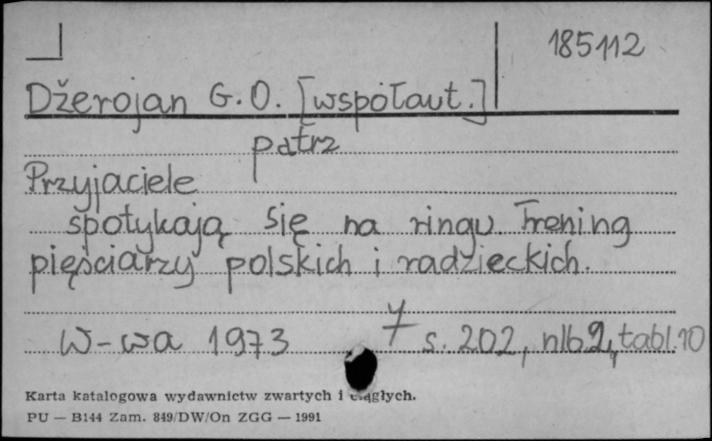 185112
Džerojan G.O. [współaut.]
patrz
Przyjaciele
spotykają się na ringu. Trening
pięściarzy polskich i radzieckich.
W-wa 1973 7 s. 202, nlb 2, tabl. 10
Karta katalogowa wydawnictw zwartych i ciągłych.
PU — B144 Zam. 849/DW/On ZGG — 1991